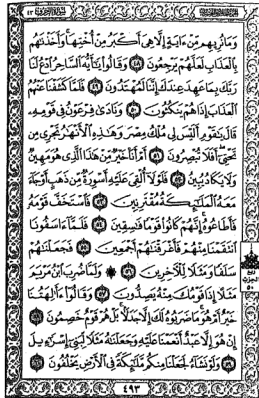 وَمَا نُرِيهِم مِّنْ ءَايَةٍ إِلَّا هِيَ أَكْبَرُ مِنْ أُخْتِهَا وَأَخَذْنَٰهُم
بِالْعَذَابِ لَعَلَّهُمْ يَرْجِعُونَ ٤٨ وَقَالُوا يَٰأَيُّهَ السَّاحِرُ ادْعُ لَنَا
رَبَّكَ بِمَا عَهِدَ عِندَكَ إِنَّنَا لَمُهْتَدُونَ ٤٩ فَلَمَّا كَشَفْنَا عَنْهُمُ
الْعَذَابَ إِذَا هُمْ يَنكُثُونَ ٥٠ وَنَادَىٰ فِرْعَوْنُ فِي قَوْمِهِ
قَالَ يَٰقَوْمِ أَلَيْسَ لِي مُلْكُ مِصْرَ وَهَٰذِهِ الْأَنْهَٰرُ تَجْرِي مِن
تَحْتِي أَفَلَا تُبْصِرُونَ ٥١ أَمْ أَنَا خَيْرٌ مِّنْ هَٰذَا الَّذِي هُوَ مَهِينٌ
وَلَا يَكَادُ يُبِينُ ٥٢ فَلَوْلَا أُلْقِيَ عَلَيْهِ أَسْوِرَةٌ مِّن ذَهَبٍ أَوْ جَاءَ
مَعَهُ الْمَلَٰئِكَةُ مُقْتَرِنِينَ ٥٣ فَاسْتَخَفَّ قَوْمَهُ
فَأَطَاعُوهُ إِنَّهُمْ كَانُوا قَوْمًا فَٰسِقِينَ ٥٤ فَلَمَّا ءَاسَفُونَا
انتَقَمْنَا مِنْهُمْ فَأَغْرَقْنَٰهُمْ أَجْمَعِينَ ٥٥ فَجَعَلْنَٰهُمْ
سَلَفًا وَمَثَلًا لِّلْءَاخِرِينَ ٥٦ ۞ وَلَمَّا ضُرِبَ ابْنُ مَرْيَمَ
مَثَلًا إِذَا قَوْمُكَ مِنْهُ يَصِدُّونَ ٥٧ وَقَالُوا ءَأَٰلِهَتُنَا
خَيْرٌ أَمْ هُوَ مَا ضَرَبُوهُ لَكَ إِلَّا جَدَلًا بَلْ هُمْ قَوْمٌ خَصِمُونَ ٥٨
إِنْ هُوَ إِلَّا عَبْدٌ أَنْعَمْنَا عَلَيْهِ وَجَعَلْنَٰهُ مَثَلًا لِّبَنِي إِسْرَٰءِيلَ
٥٩ وَلَوْ نَشَاءُ لَجَعَلْنَا مِنكُم مَّلَٰئِكَةً فِي الْأَرْضِ يَخْلُفُونَ ٦٠
٤٩٣